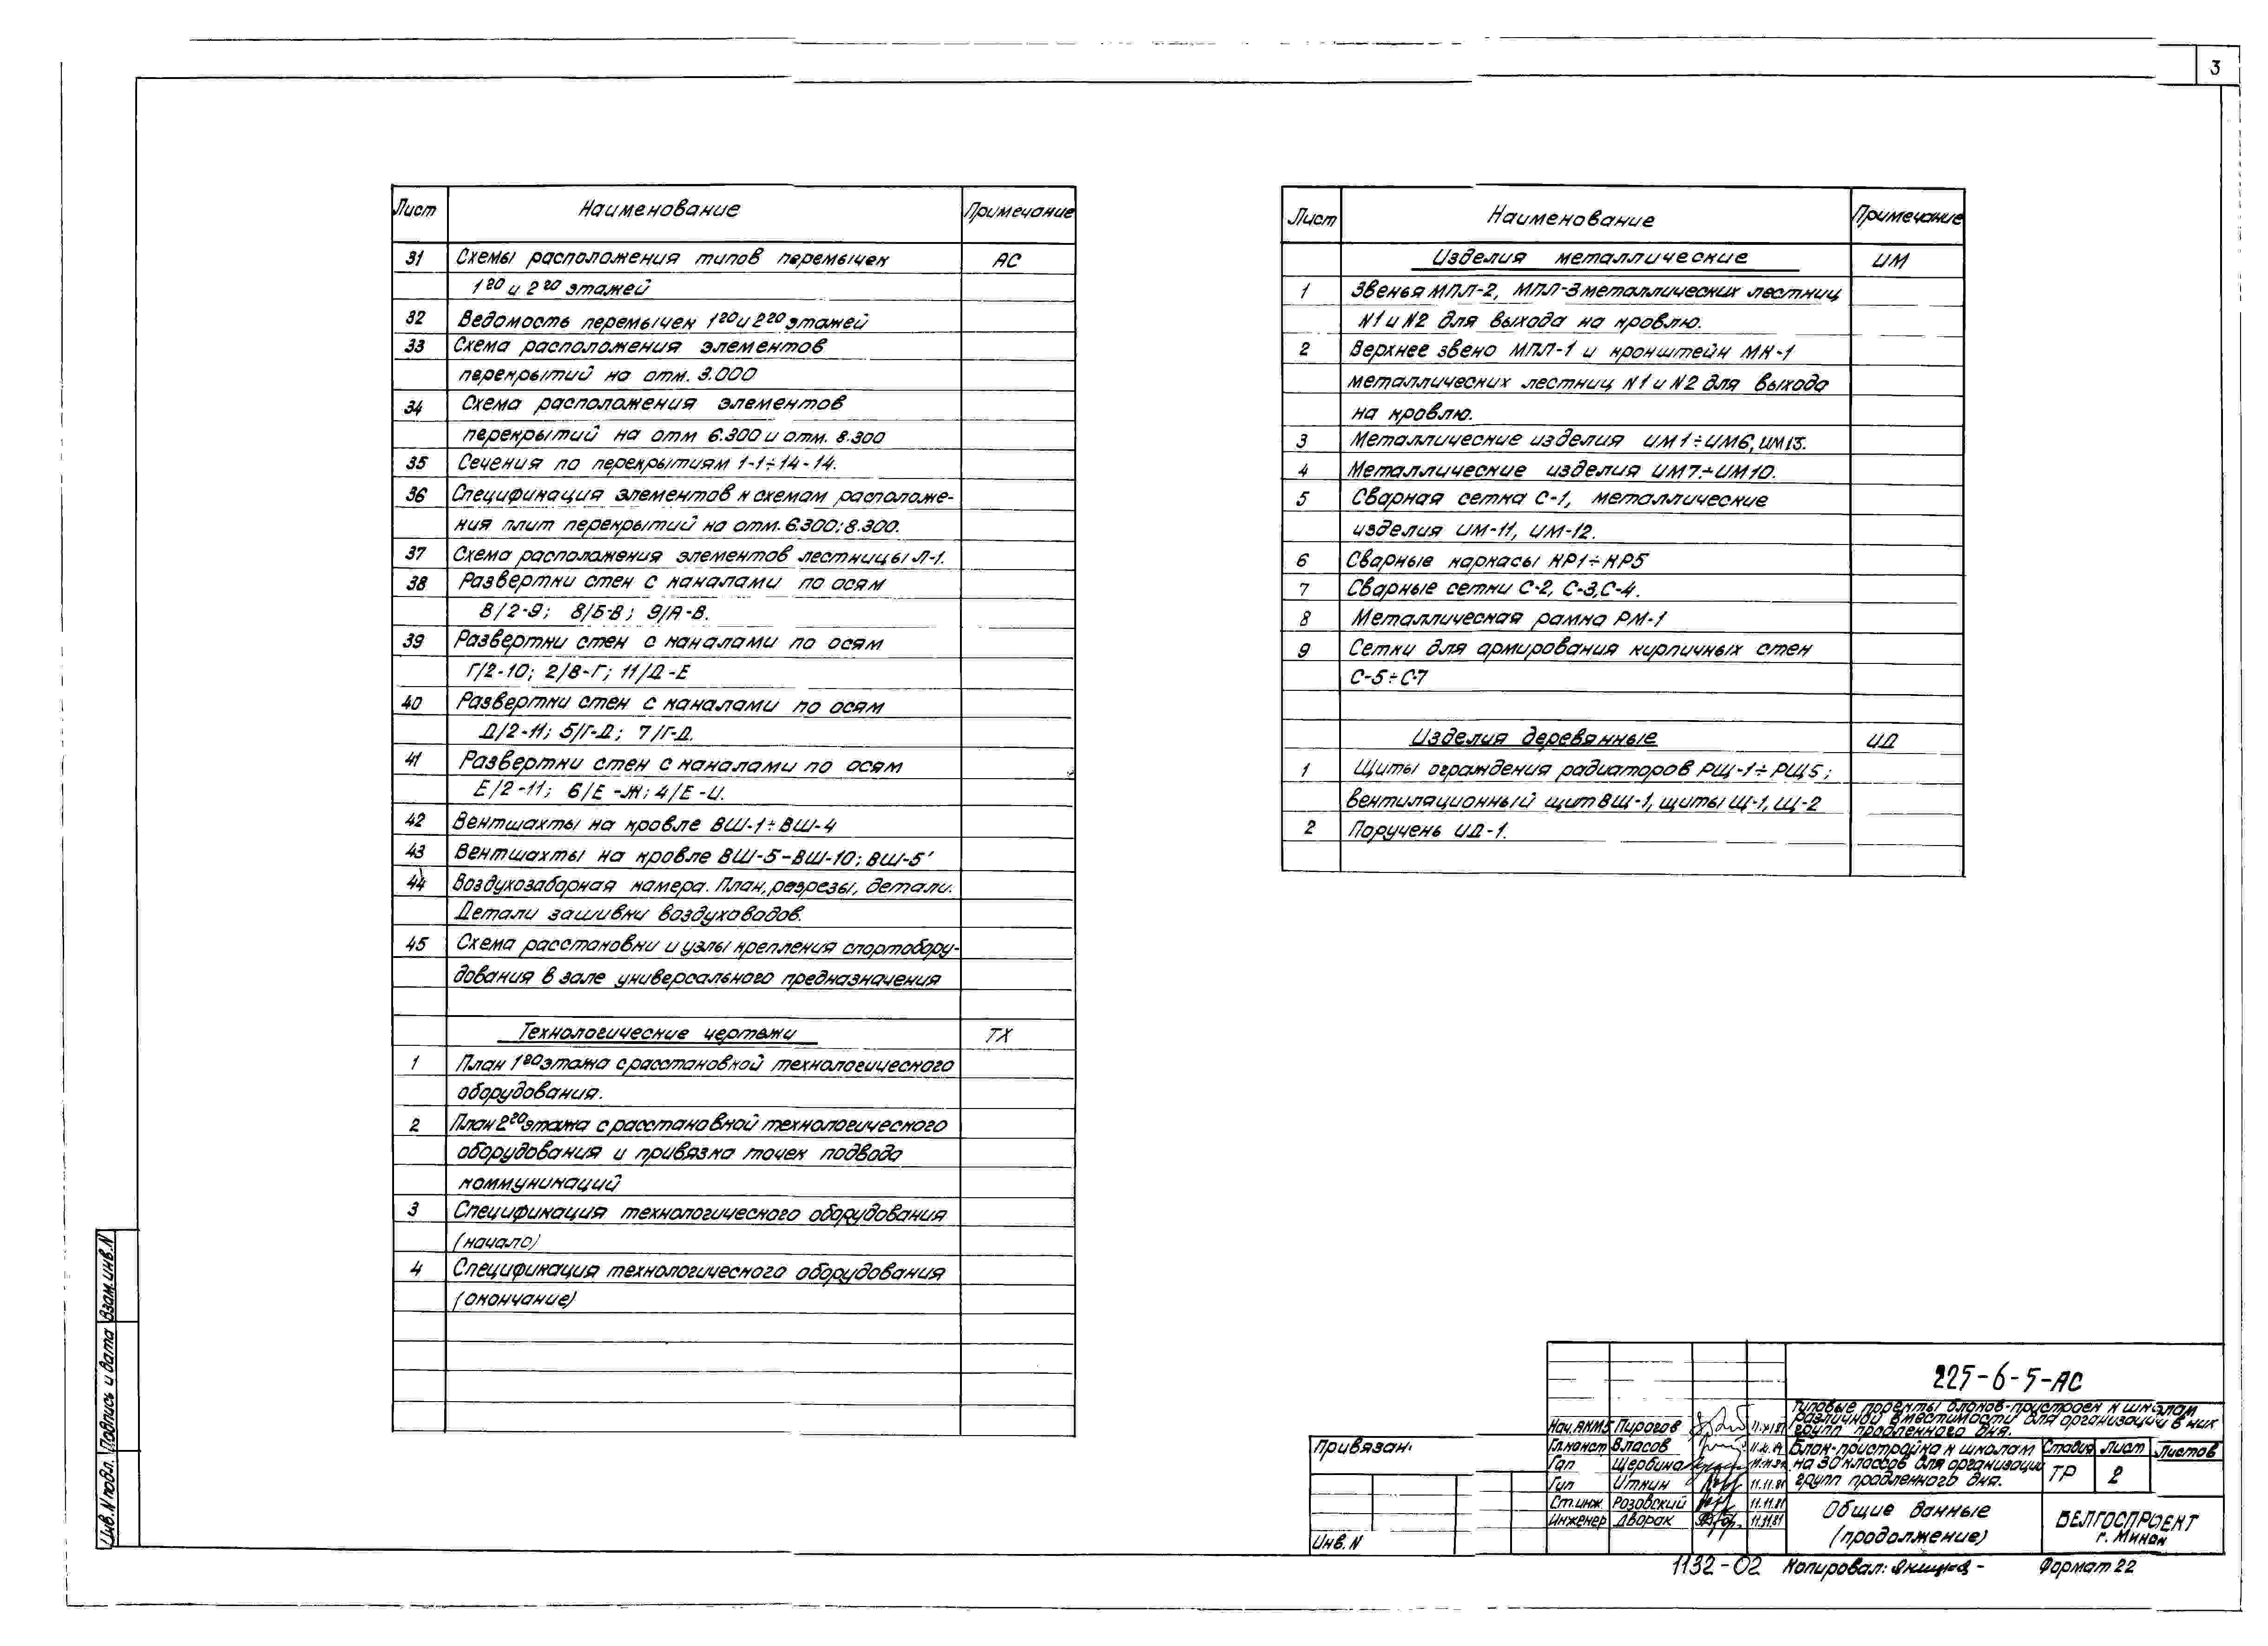 3
Лист Наименование Примечание
31 Схемы расположения типов перемычек АС
1го и 2го этажей
32 Ведомость перемычек 1го и 2го этажей
33 Схема расположения элементов
перекрытий на отм. 3.000
34 Схема расположения элементов
перекрытий на отм 6.300 и отм. 8.300
35 Сечения по перекрытиям 1-1÷14-14.
36 Спецификация элементов к схемам расположе-
ния плит перекрытий на отм. 6.300; 8.300.
37 Схема расположения элементов лестницы Л-1.
38 Развертки стен с каналами по осям
В/2-9; 8/Б-В; 9/А-В.
39 Развертки стен с каналами по осям
Г/2-10; 2/В-Г; 11/Д-Е
40 Развертки стен с каналами по осям
Д/2-11; 5/Г-Д; 7/Г-Д.
41 Развертки стен с каналами по осям
Е/2-11; 6/Е-Ж; 4/Е-И.
42 Вентшахты на кровле ВШ-1÷ВШ-4
43 Вентшахты на кровле ВШ-5-ВШ-10; ВШ-5'
44 Воздухозаборная камера. План, разрезы, детали.
Детали зашивки воздуховодов.
45 Схема расстановки и узлы крепления спортобору-
дования в зале универсального предназначения
Технологические чертежи ТХ
1 План 1го этажа с расстановкой технологического
оборудования.
2 План 2го этажа с расстановкой технологического
оборудования и привязка точек подвода
коммуникаций
3 Спецификация технологического оборудования
(начало)
4 Спецификация технологического оборудования
(окончание)
Лист Наименование Примечание
Изделия металлические ИМ
1 Звенья МПЛ-2, МПЛ-3 металлических лестниц
N1 и N2 для выхода на кровлю.
2 Верхнее звено МПЛ-1 и кронштейн МК-1
металлических лестниц N1 и N2 для выхода
на кровлю.
3 Металлические изделия ИМ1÷ИМ6, ИМ13.
4 Металлические изделия ИМ7÷ИМ10.
5 Сварная сетка С-1, металлические
изделия ИМ-11, ИМ-12.
6 Сварные каркасы КР1÷КР5
7 Сварные сетки С-2, С-3, С-4.
8 Металлическая рамка РМ-1
9 Сетки для армирования кирпичных стен
С-5÷С7
Изделия деревянные ИД
1 Щиты ограждения радиаторов РЩ-1÷РЩ5;
вентиляционный щит ВЩ-1, щиты Щ-1, Щ-2
2 Поручень ИД-1.
Инв.N подл. Подпись и дата Взам.инв.N
Привязан:
Инв.N
225-6-5-АС
Типовые проекты блоков-пристроек к школам
различной вместимости для организации в них
групп продленного дня.
Нач.АКМ5 Пирогов 11.XI.81
Гл.конст Власов
Гап Щербина
Гип Иткин 11.11.81
Ст.инж. Розовский 11.11.81
Инженер Дворак 11.11.81
Блок-пристройка к школам
на 30 классов для организации
групп продленного дня.
Стадия Лист Листов
ТР 2
Общие данные
(продолжение)
БЕЛГОСПРОЕКТ
г. Минск
1132-02 Копировал: Формат 22